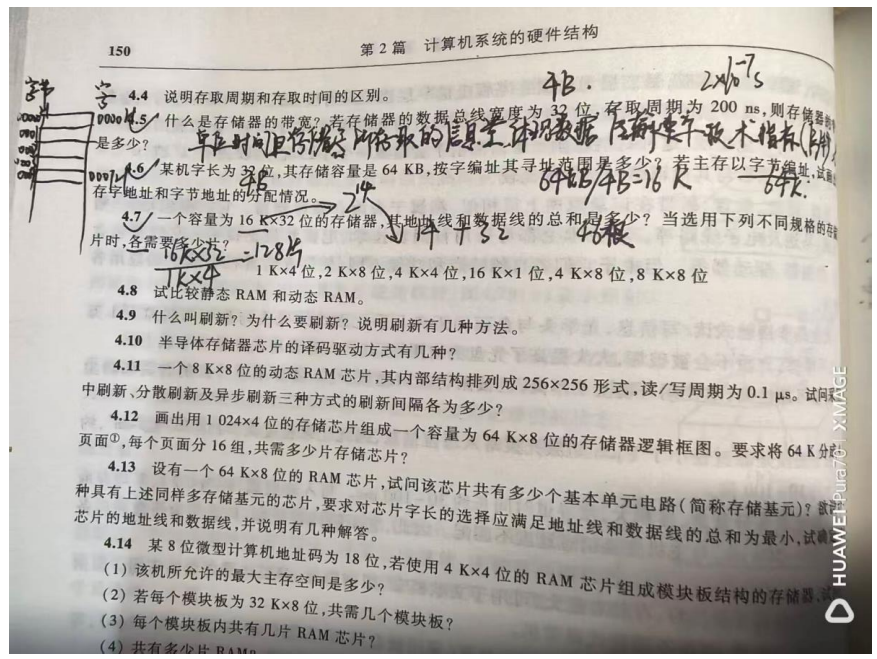 150
第 2 篇 计算机系统的硬件结构
4B.
2×10⁻⁷s
字节
字 4.4 说明存取周期和存取时间的区别。
4.5 什么是存储器的带宽？若存储器的数据总线宽度为 32 位，存取周期为 200 ns，则存储器的
是多少？
单位时间 存取的信息量
技术指标
4.6 某机字长为 32 位，其存储容量是 64 KB，按字编址其寻址范围是多少？若主存以字节编址，试
4B
64KB/4B=16K
64K.
存字地址和字节地址的分配情况。
2¹⁴
4.7 一个容量为 16 K×32 位的存储器，其地址线和数据线的总和是多少？当选用下列不同规格的存
14 + 32
46根
片时，各需要多少片？
16K×32
1K×4
=128片
1 K×4 位，2 K×8 位，4 K×4 位，16 K×1 位，4 K×8 位，8 K×8 位
4.8 试比较静态 RAM 和动态 RAM。
4.9 什么叫刷新？为什么要刷新？说明刷新有几种方法。
4.10 半导体存储器芯片的译码驱动方式有几种？
4.11 一个 8 K×8 位的动态 RAM 芯片，其内部结构排列成 256×256 形式，读/写周期为 0.1 μs。试问
中刷新、分散刷新及异步刷新三种方式的刷新间隔各为多少？
4.12 画出用 1 024×4 位的存储芯片组成一个容量为 64 K×8 位的存储器逻辑框图。要求将 64 K 分
页面①，每个页面分 16 组，共需多少片存储芯片？
4.13 设有一个 64 K×8 位的 RAM 芯片，试问该芯片共有多少个基本单元电路（简称存储基元）？
种具有上述同样多存储基元的芯片，要求对芯片字长的选择应满足地址线和数据线的总和为最小，试
芯片的地址线和数据线，并说明有几种解答。
4.14 某 8 位微型计算机地址码为 18 位，若使用 4 K×4 位的 RAM 芯片组成模块板结构的存储器，
（1）该机所允许的最大主存空间是多少？
（2）若每个模块板为 32 K×8 位，共需几个模块板？
（3）每个模块板内共有几片 RAM 芯片？
（4）共有多少片 RAM？
HUAWEI Pura70 | XMAGE